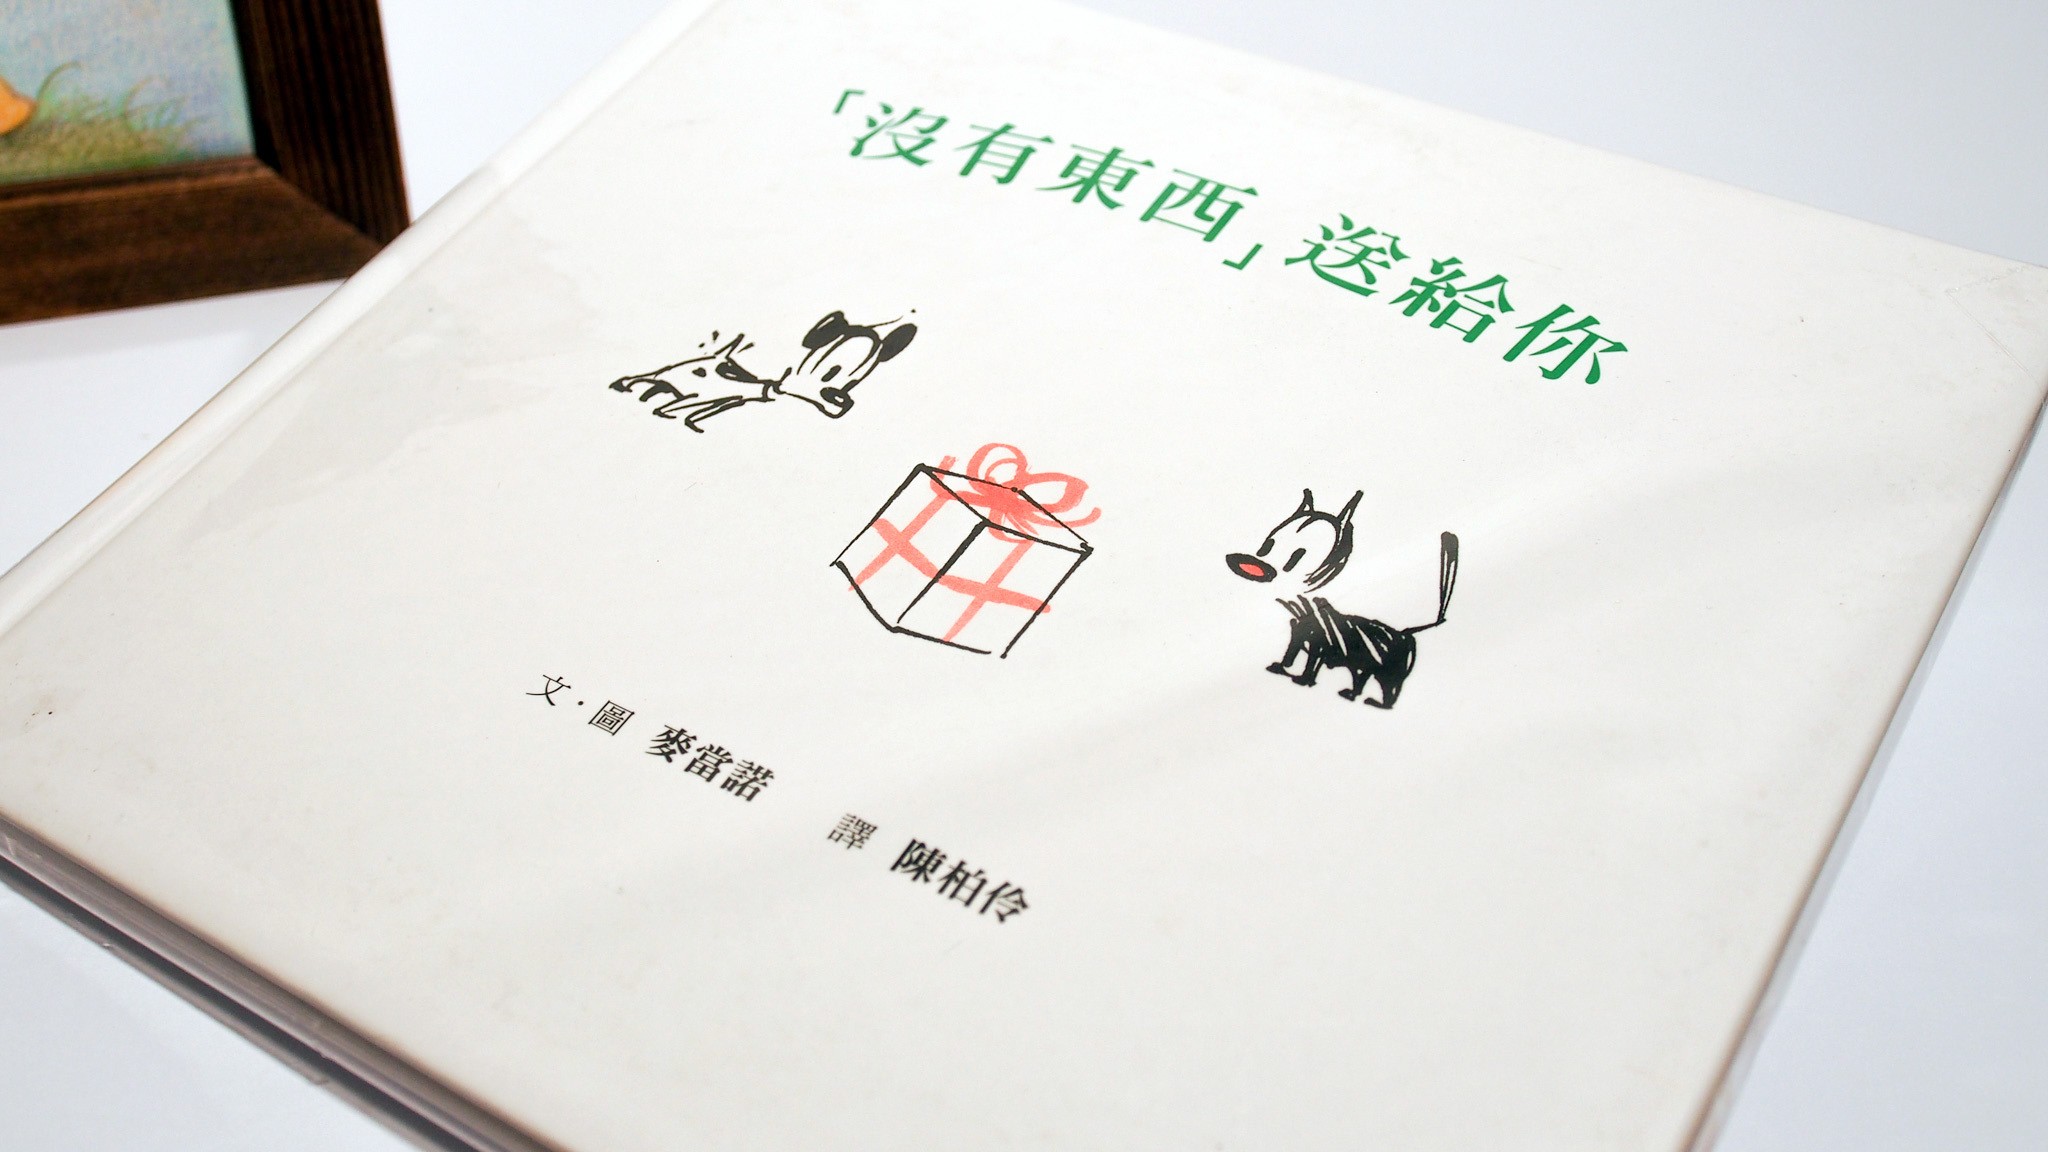 「沒有東西」送給你
文・圖 麥當諾 譯 陳柏伶